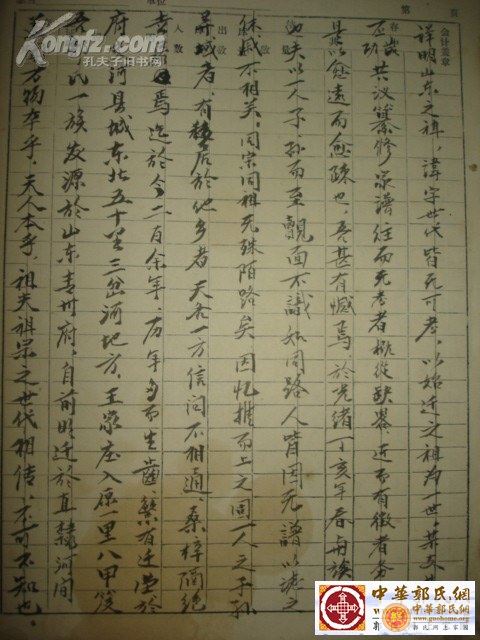 万物本乎天人本乎祖夫祖宗之世代相传,不可不知也。
氏一族发源於山东青州府,自前明迁於直隶河间
府交河县城东北五十里三岔河地方,王家庄入原一里八甲
焉迄於今二百余年,历年多而生齿繁有迁
异域者,有移居於他乡者天各一方信问不相通,桑梓隔绝
休戚不相关,同宗同祖无殊陌路矣,因忆推而上之同一人之子孙
也夫以一人子孙而至觌面不识如同路人皆因无谱以志之
是以愈远而愈疏也,吾甚有憾焉於光绪丁亥年春与族
共议纂修家谱往而无考者概从缺略,近而有徵者
详明山东之祖,讳字世代皆无可考,以始迁之祖为一世,
单位
第 页
会计盖章
人数
Kongfz.com
孔夫子旧书网
中華郭氏網
www.guohome.org
郭氏网上家園